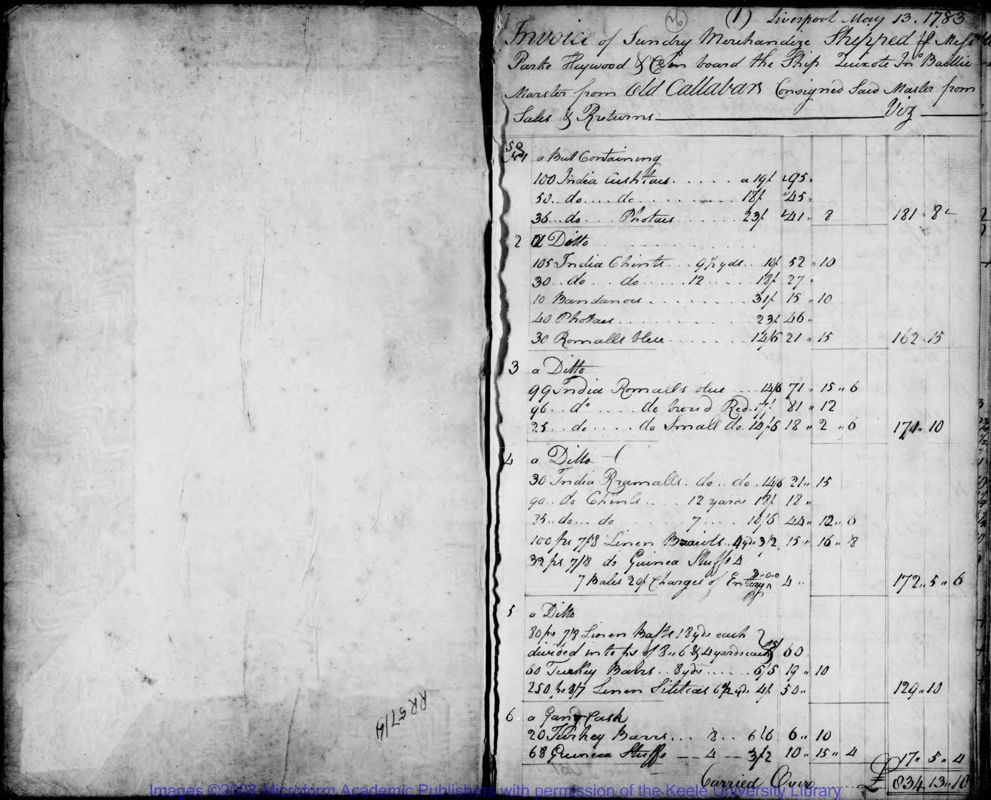 (1) Liverpool May 13. 1783
Invoice of Sundry Merchandize Shipped
Parke Heywood & Co on board the Ship Quixote Jno Baillie
Master from Old Callabars Consigned Said Master from
Sales & Returns Viz
No 1 a Bale Containing
100 India Cushtaes a 19/ 95
50 do do 18/ 45
36 do Photaes 23/ 41 8 181 8
2 a Ditto
105 India Chints 9½ yds 10/ 52 10
30 do do 12 18/ 27
10 Bandanoes 31/ 15 10
40 Photaes 23/ 46
30 Romalls blue 14/6 21 15 162 15
3 a Ditto
99 India Romalls blue 14/6 71 15 6
96 do do broad Red 17/ 81 12
25 do do Small do 14/6 18 2 6 171 10
4 a Ditto
30 India Romalls do do 14/6 21 15
90 do Chints 12 yards 18
do do 7 44 12 6
100 ps 7/8 Linen 4 yds 3/2 15 16 8
32 ps 7/8 do Guinea Stuffs 4
7 Bales 20/ Charges of Entry 4 172 5 6
5 a Ditto
80 ps 7/8 Linen Bafts 18 yds each
divided into ps of 8, 6 & 4 yards each 15/ 60
60 Turkey Barrs 8 yds 6/6 19 10
250 ps Linen Silesias 4/ 50 129 10
6 a Cask
20 Turkey Barrs 8 6/6 6 10
68 Guinea Stuffs 4 3/2 10 15 4 17 5 4
Carried Over £ 834 13 10
RR57/4
Images ©2008 Microform Academic Publishers with permission of the Keele University Library